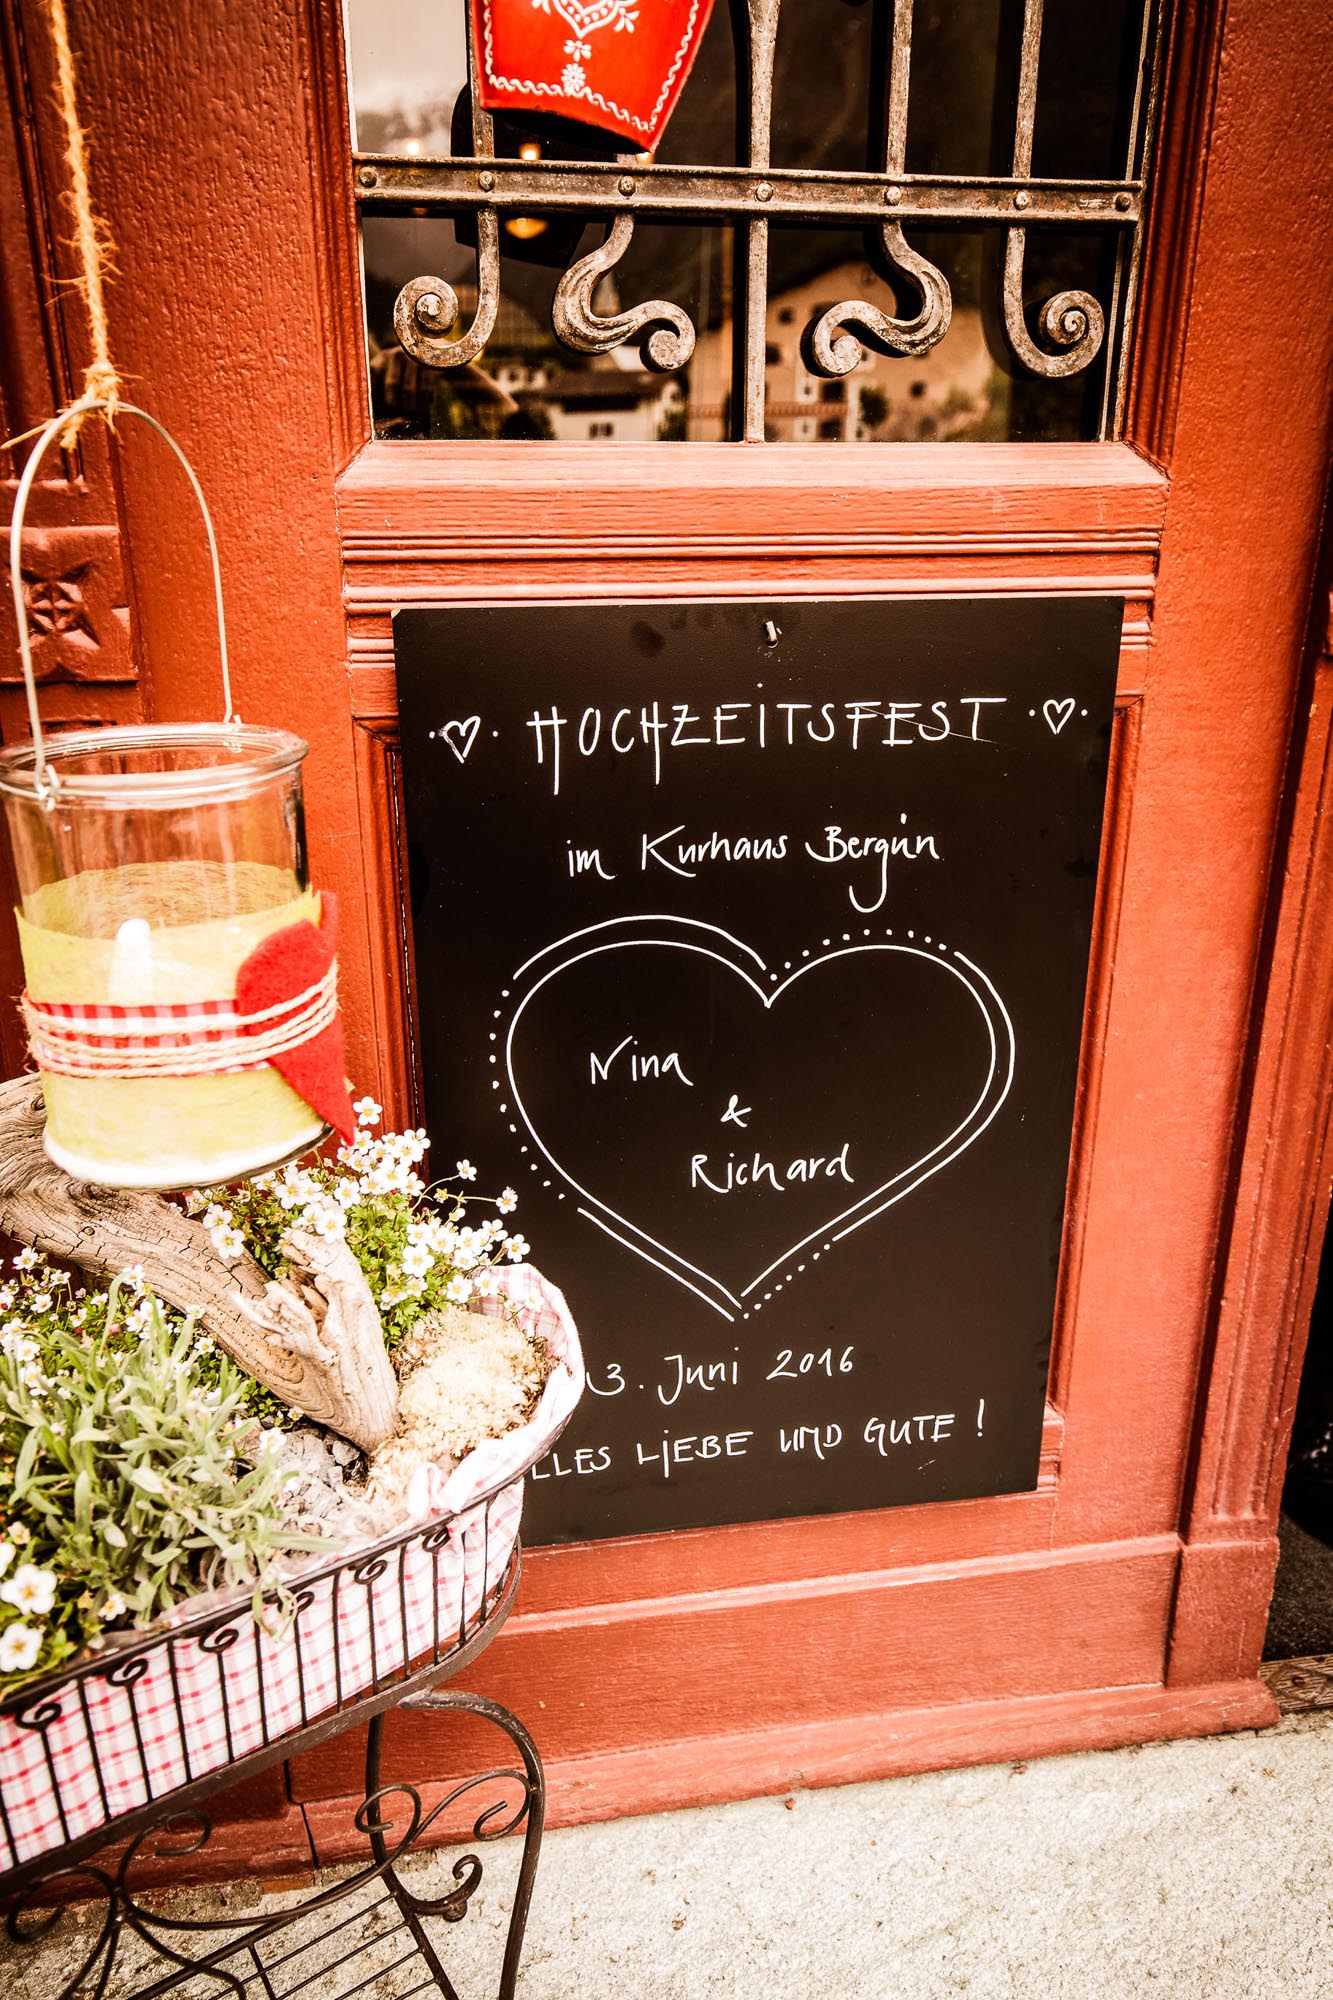 HOCHZEITSFEST
im Kurhaus Bergün
Nina
&
Richard
3. Juni 2016
LLES LIEBE UND GUTE!